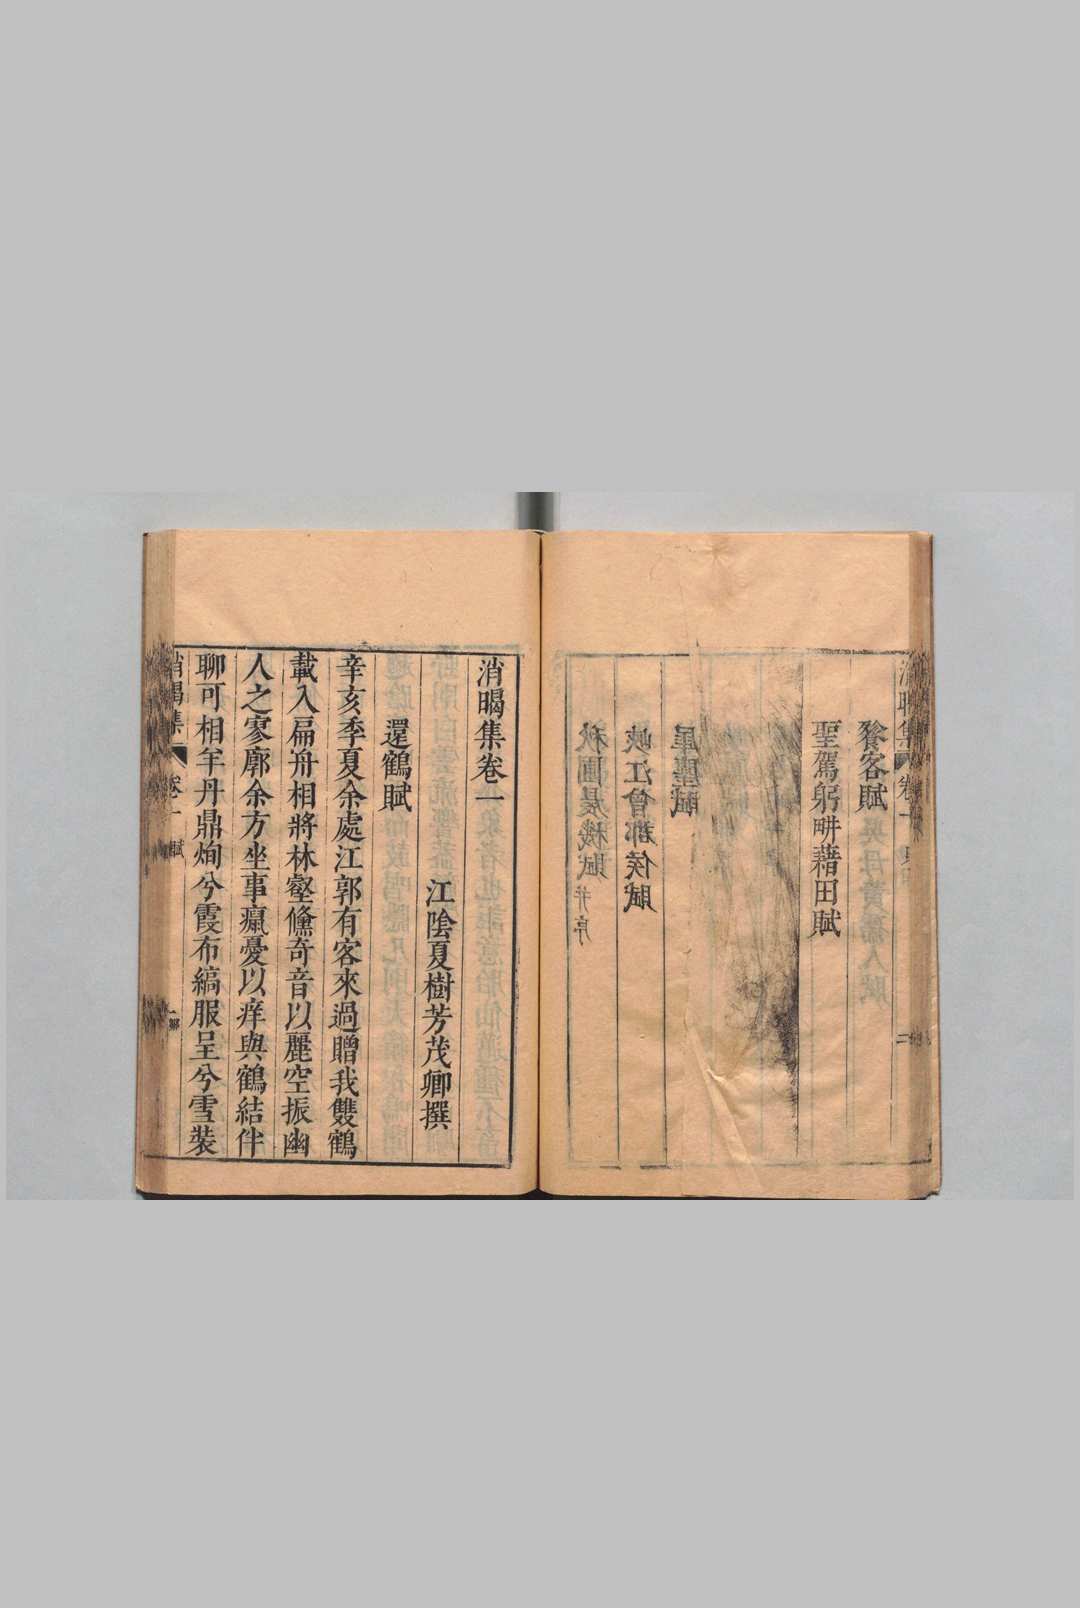 餮客賦
聖駕躬畊藉田賦
犀麈賦
峽江會郡侯賦
秋圃晨機賦 并序
消暍集卷一
江陰夏樹芳茂卿撰
還鶴賦
辛亥季夏余處江郭有客來過贈我雙鶴
載入扁舟相將林壑儵奇音以麗空振幽
人之寥廓余方坐事癙憂以痒與鶴結伴
聊可相羊丹鼎煥兮霞布縞服呈兮雪裝
消暍集
卷一
賦